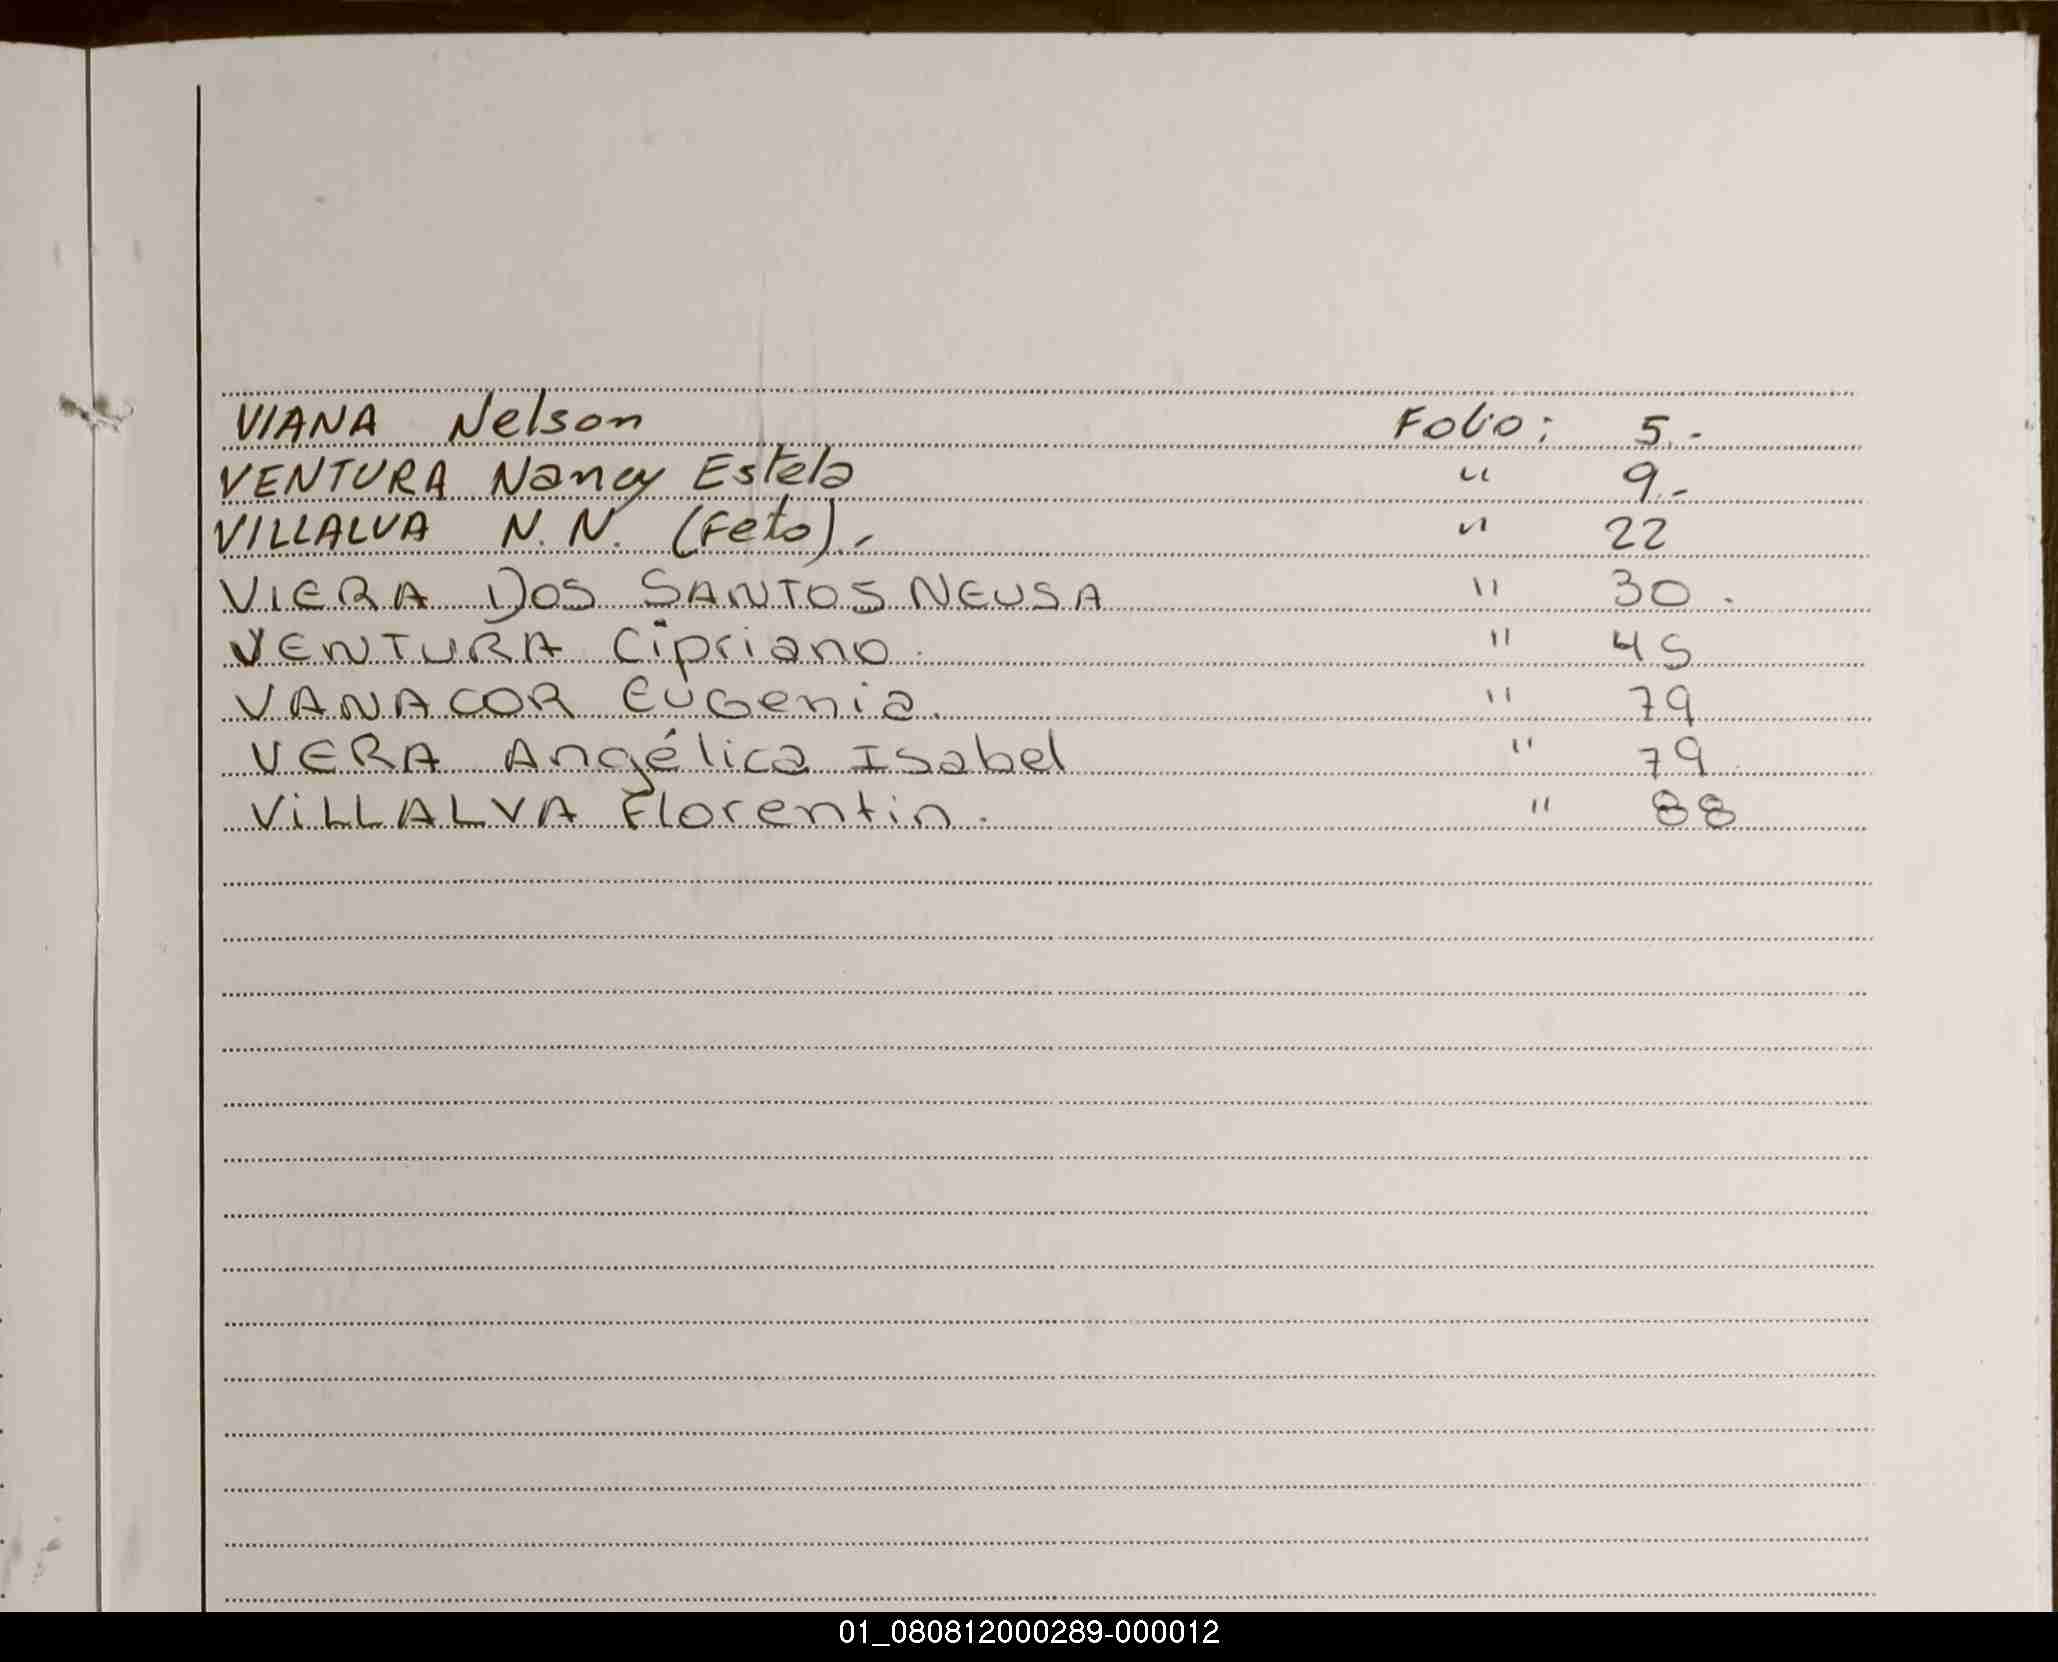 VIANA Nelson Folio: 5.-
VENTURA Nancy Estela " 9.-
VILLALVA N. N. (Feto).- " 22
VIERA DOS SANTOS NEUSA " 30.
VENTURA Cipriano. " 45
VANACOR Eugenia. " 79
VERA Angélica Isabel " 79
VILLALVA Florentin. " 88
01_080812000289-000012